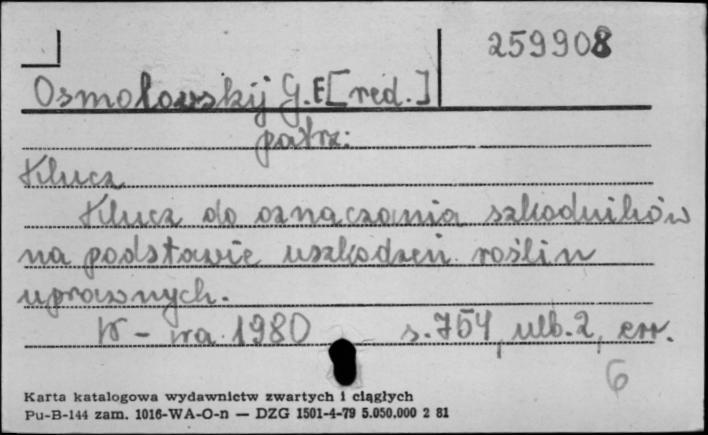 259908
Osmołowskij G.E [red.]
patrz:
Klucz
Klucz do oznaczania szkodników
na podstawie uszkodzeń roślin
uprawnych.
W-wa 1980 s. 754, ulb. 2, err.
6
Karta katalogowa wydawnictw zwartych i ciągłych
Pu-B-144 zam. 1016-WA-O-n — DZG 1501-4-79 5.050.000 2 81